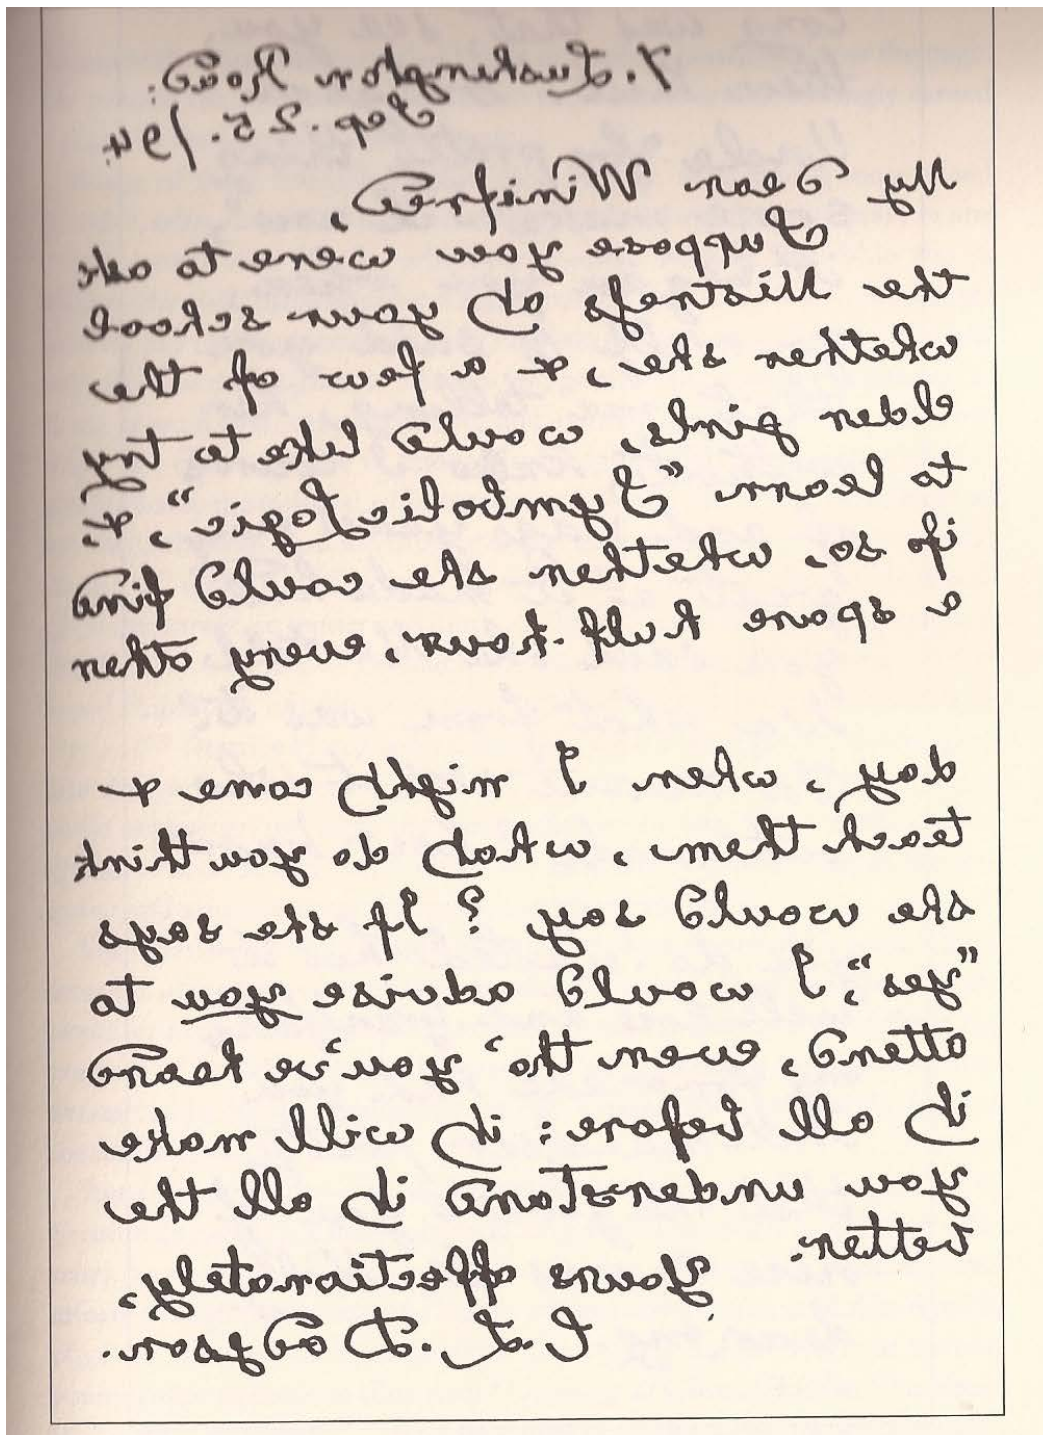 7. Lushington Road:
Sep. 25. /94
My dear Winifred,
Suppose you were to ask
the Mistress of your school
whether she, & a few of the
elder girls, would like to try
to learn "Symbolic Logic", &,
if so, whether she could find
a spare half-hour, every other
day, when I might come &
teach them, what do you think
she would say? If she says
"yes", I would advise you to
attend, even tho' you've heard
it all before: it will make
you understand it all the
better.
Yours affectionately,
C. L. Dodgson.